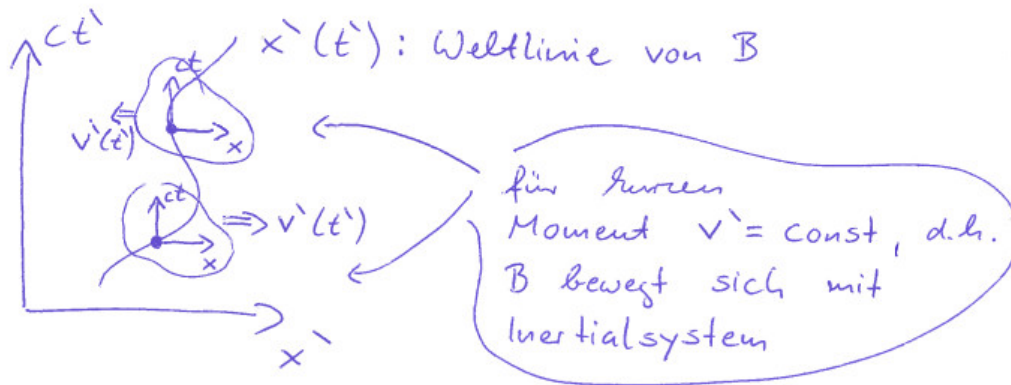 ct`
x`(t`): Weltlinie von B
ct
v`(t`)
x
ct
v`(t`)
x
x`
für kurzen
Moment v` = const, d.h.
B bewegt sich mit
Inertialsystem